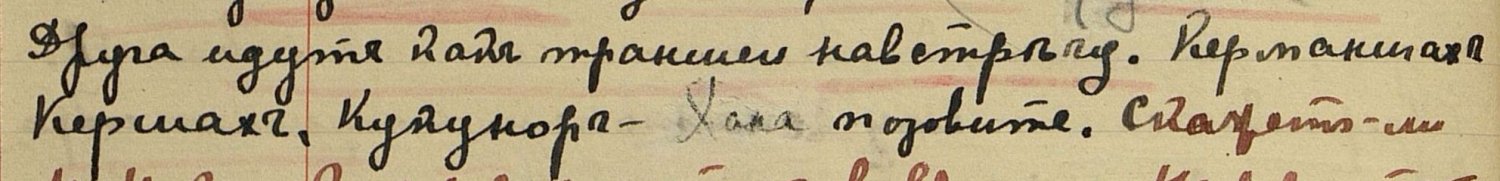 Друга идутъ какъ траншеи навстрѣчу. Керманшахъ
Кершахъ, Кукуноръ - Хана позовите. Скажетъ-ли